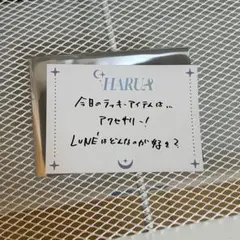 HARUA
今日のラッキーアイテムは、、
アクセサリー!
LUNÉはどんなのが好き?